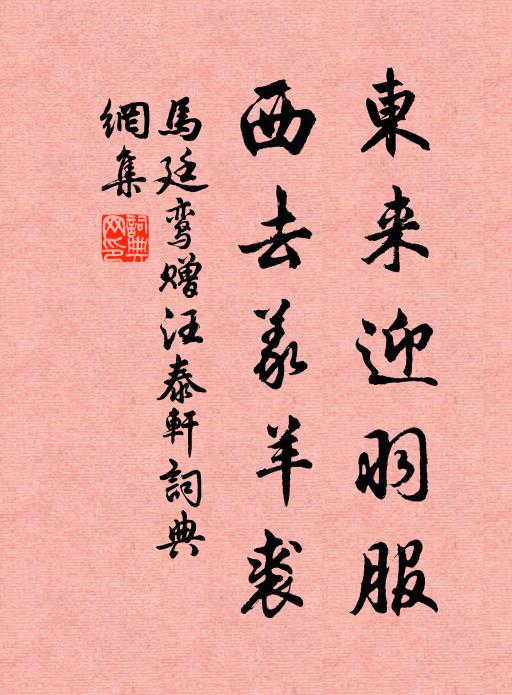 東来迎羽服
西去羡羊裘
馬廷鸾贈汪泰軒詞典
網集
詞典网印